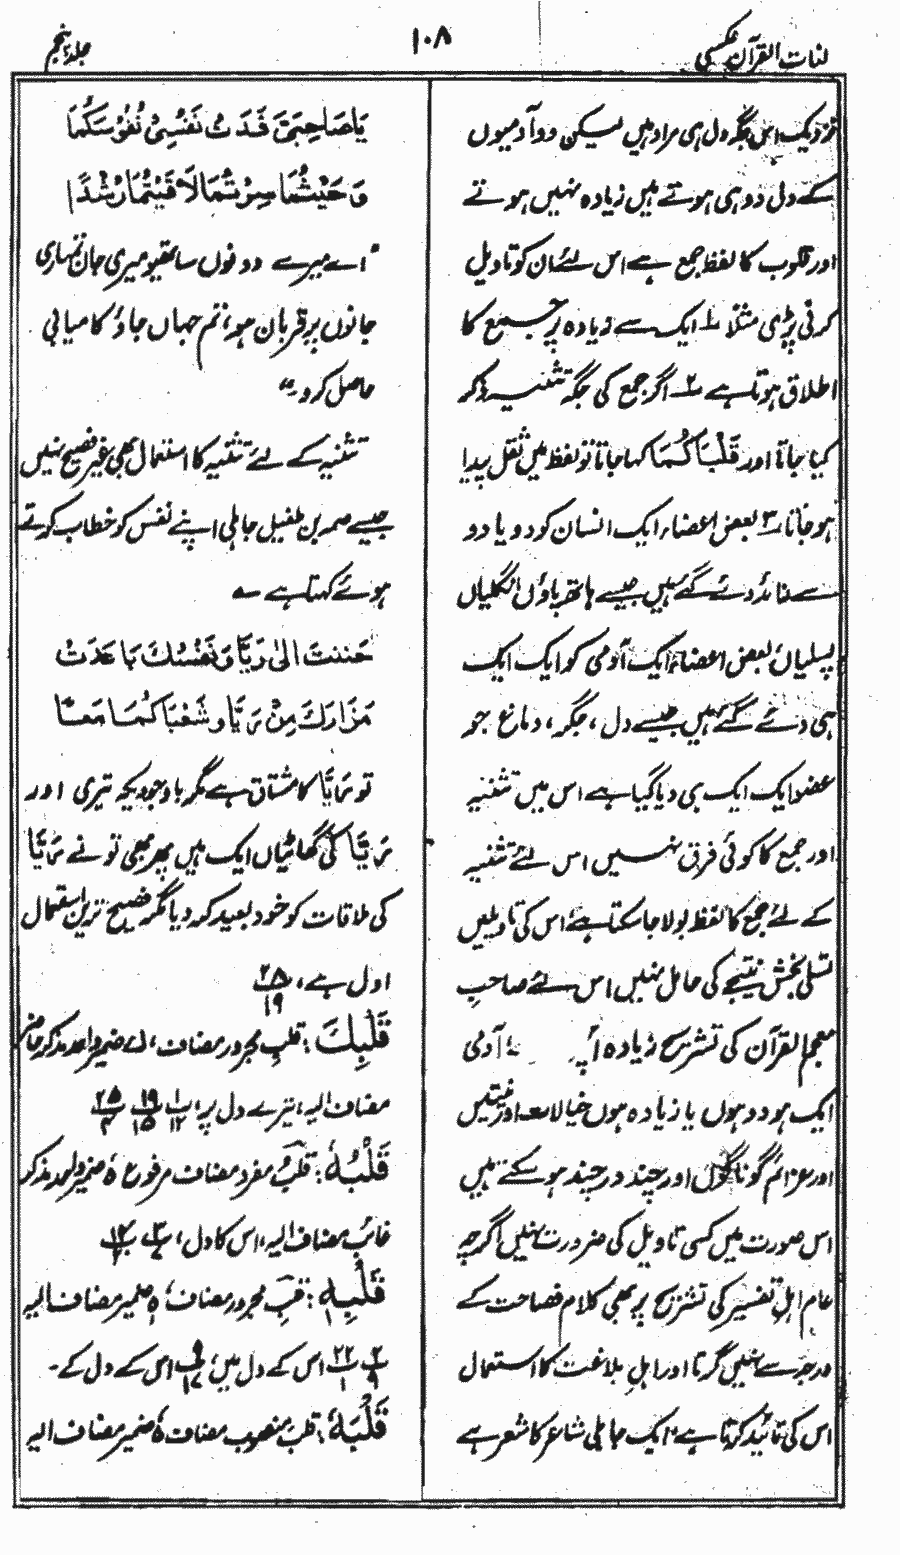 لغات القرآن عکسی
۱۰۸
جلد پنجم
نزدیک اس جگہ دل ہی مراد ہیں لیکن دو آدمیوں
کے دل دو ہی ہوتے ہیں زیادہ نہیں ہوتے
اور قلوب کا لفظ جمع ہے اس لئے ان کو تاویل
کرنی پڑی مثلاً ۱ ایک سے زیادہ پر جمع کا
اطلاق ہوتا ہے ۲ اگر جمع کی جگہ تثنیہ ذکر
کیا جاتا اور قَلْبَاكُمَا کہا جاتا تو لفظ میں ثقل پیدا
ہو جاتا ۳ بعض اعضاء ایک انسان کو دو یا دو
سے زائد دئے گئے ہیں جیسے ہاتھ پاؤں انگلیاں
پسلیاں، بعض اعضاء ایک آدمی کو ایک ایک
ہی دئے گئے ہیں جیسے دل، جگر، دماغ جو
عضو ایک ایک ہی دیا گیا ہے اس میں تثنیہ
اور جمع کا کوئی فرق نہیں اس لئے تثنیہ
کے لئے جمع کا لفظ بولا جا سکتا ہے اس کی تاویلیں
تسلی بخش نتیجے کی حامل نہیں اس لئے صاحبِ
معجم القرآن کی تشریح زیادہ آدمی
ایک ہو دو ہوں یا زیادہ ہوں خیالات اور نیتیں
اور عزائم گوناگوں اور چند در چند ہو سکتے ہیں
اس صورت میں کسی تاویل کی ضرورت نہیں اگرچہ
عام اہلِ تفسیر کی تشریح پر بھی کلام فصاحت کے
درجہ سے نہیں گرتا اور اہلِ بلاغت کا استعمال
اس کی تائید کرتا ہے، ایک جاہلی شاعر کا شعر ہے
يَا صَاحِبَيَّ فَدَتْ نَفْسِيْ نُفُوْسَكُمَا
وَحَيْثُمَا سِرْتُمَا لَاقَيْتُمَا رُشْدًا
"اے میرے دونوں ساتھیو میری جان تمہاری
جانوں پر قربان ہو، تم جہاں جاؤ کامیابی
حاصل کرو۔"
تثنیہ کے لئے تثنیہ کا استعمال بھی غیر فصیح نہیں
جیسے صمہ بن طفیل جاہلی اپنے نفس کو خطاب کرتے
ہوئے کہتا ہے
حَنَنْتَ الیٰ رَيَّا وَنَفْسُكَ بَاعَدَتْ
مَزَارَكَ مِنْ رَيَّا وَشَعْبَاكُمَا مَعَا
تو رَيَّا کا مشتاق ہے مگر باوجودیکہ تیری اور
رَيَّا کی گھاٹیاں ایک ہیں پھر بھی تو نے رَيَّا
کی ملاقات کو خود بعید کر دیا مگر فصیح ترین استعمال
اول ہے، ۲۸/۱۹
قَلْبِكَ: قلبِ مجرور مضاف، ك ضمیر واحد مذکر حاضر
مضاف الیہ، تیرے دل پر،
قَلْبُهٗ: قلبُ مفرد مضاف مرفوع هٗ ضمیر واحد مذکر
غائب مضاف الیہ، اس کا دل،
قَلْبِهٖ: قلبِ مجرور مضاف، هٖ ضمیر مضاف الیہ
اس کے دل میں، اس کے دل کے۔
قَلْبَهٗ: قلبَ منصوب مضاف هٗ ضمیر مضاف الیہ